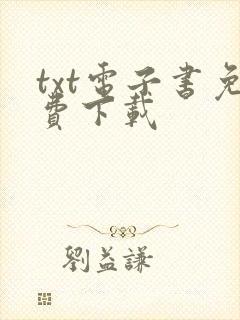 txt电子書免
費下載
劉益謙